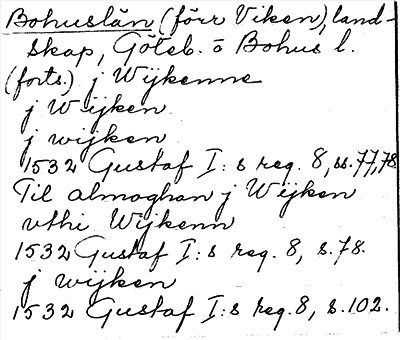 Bohuslän (förr Viken), land-
skap, Göteb. o Bohus l.
(forts.) j Wijkenne
j Wijken
j wijken
1532 Gustaf I:s reg. 8, ss. 77, 78.
Til almoghan j Wijken
vthi Wijkenn
1532 Gustaf I:s reg. 8, s. 78.
j wijken
1532 Gustaf I:s reg. 8, s. 102.